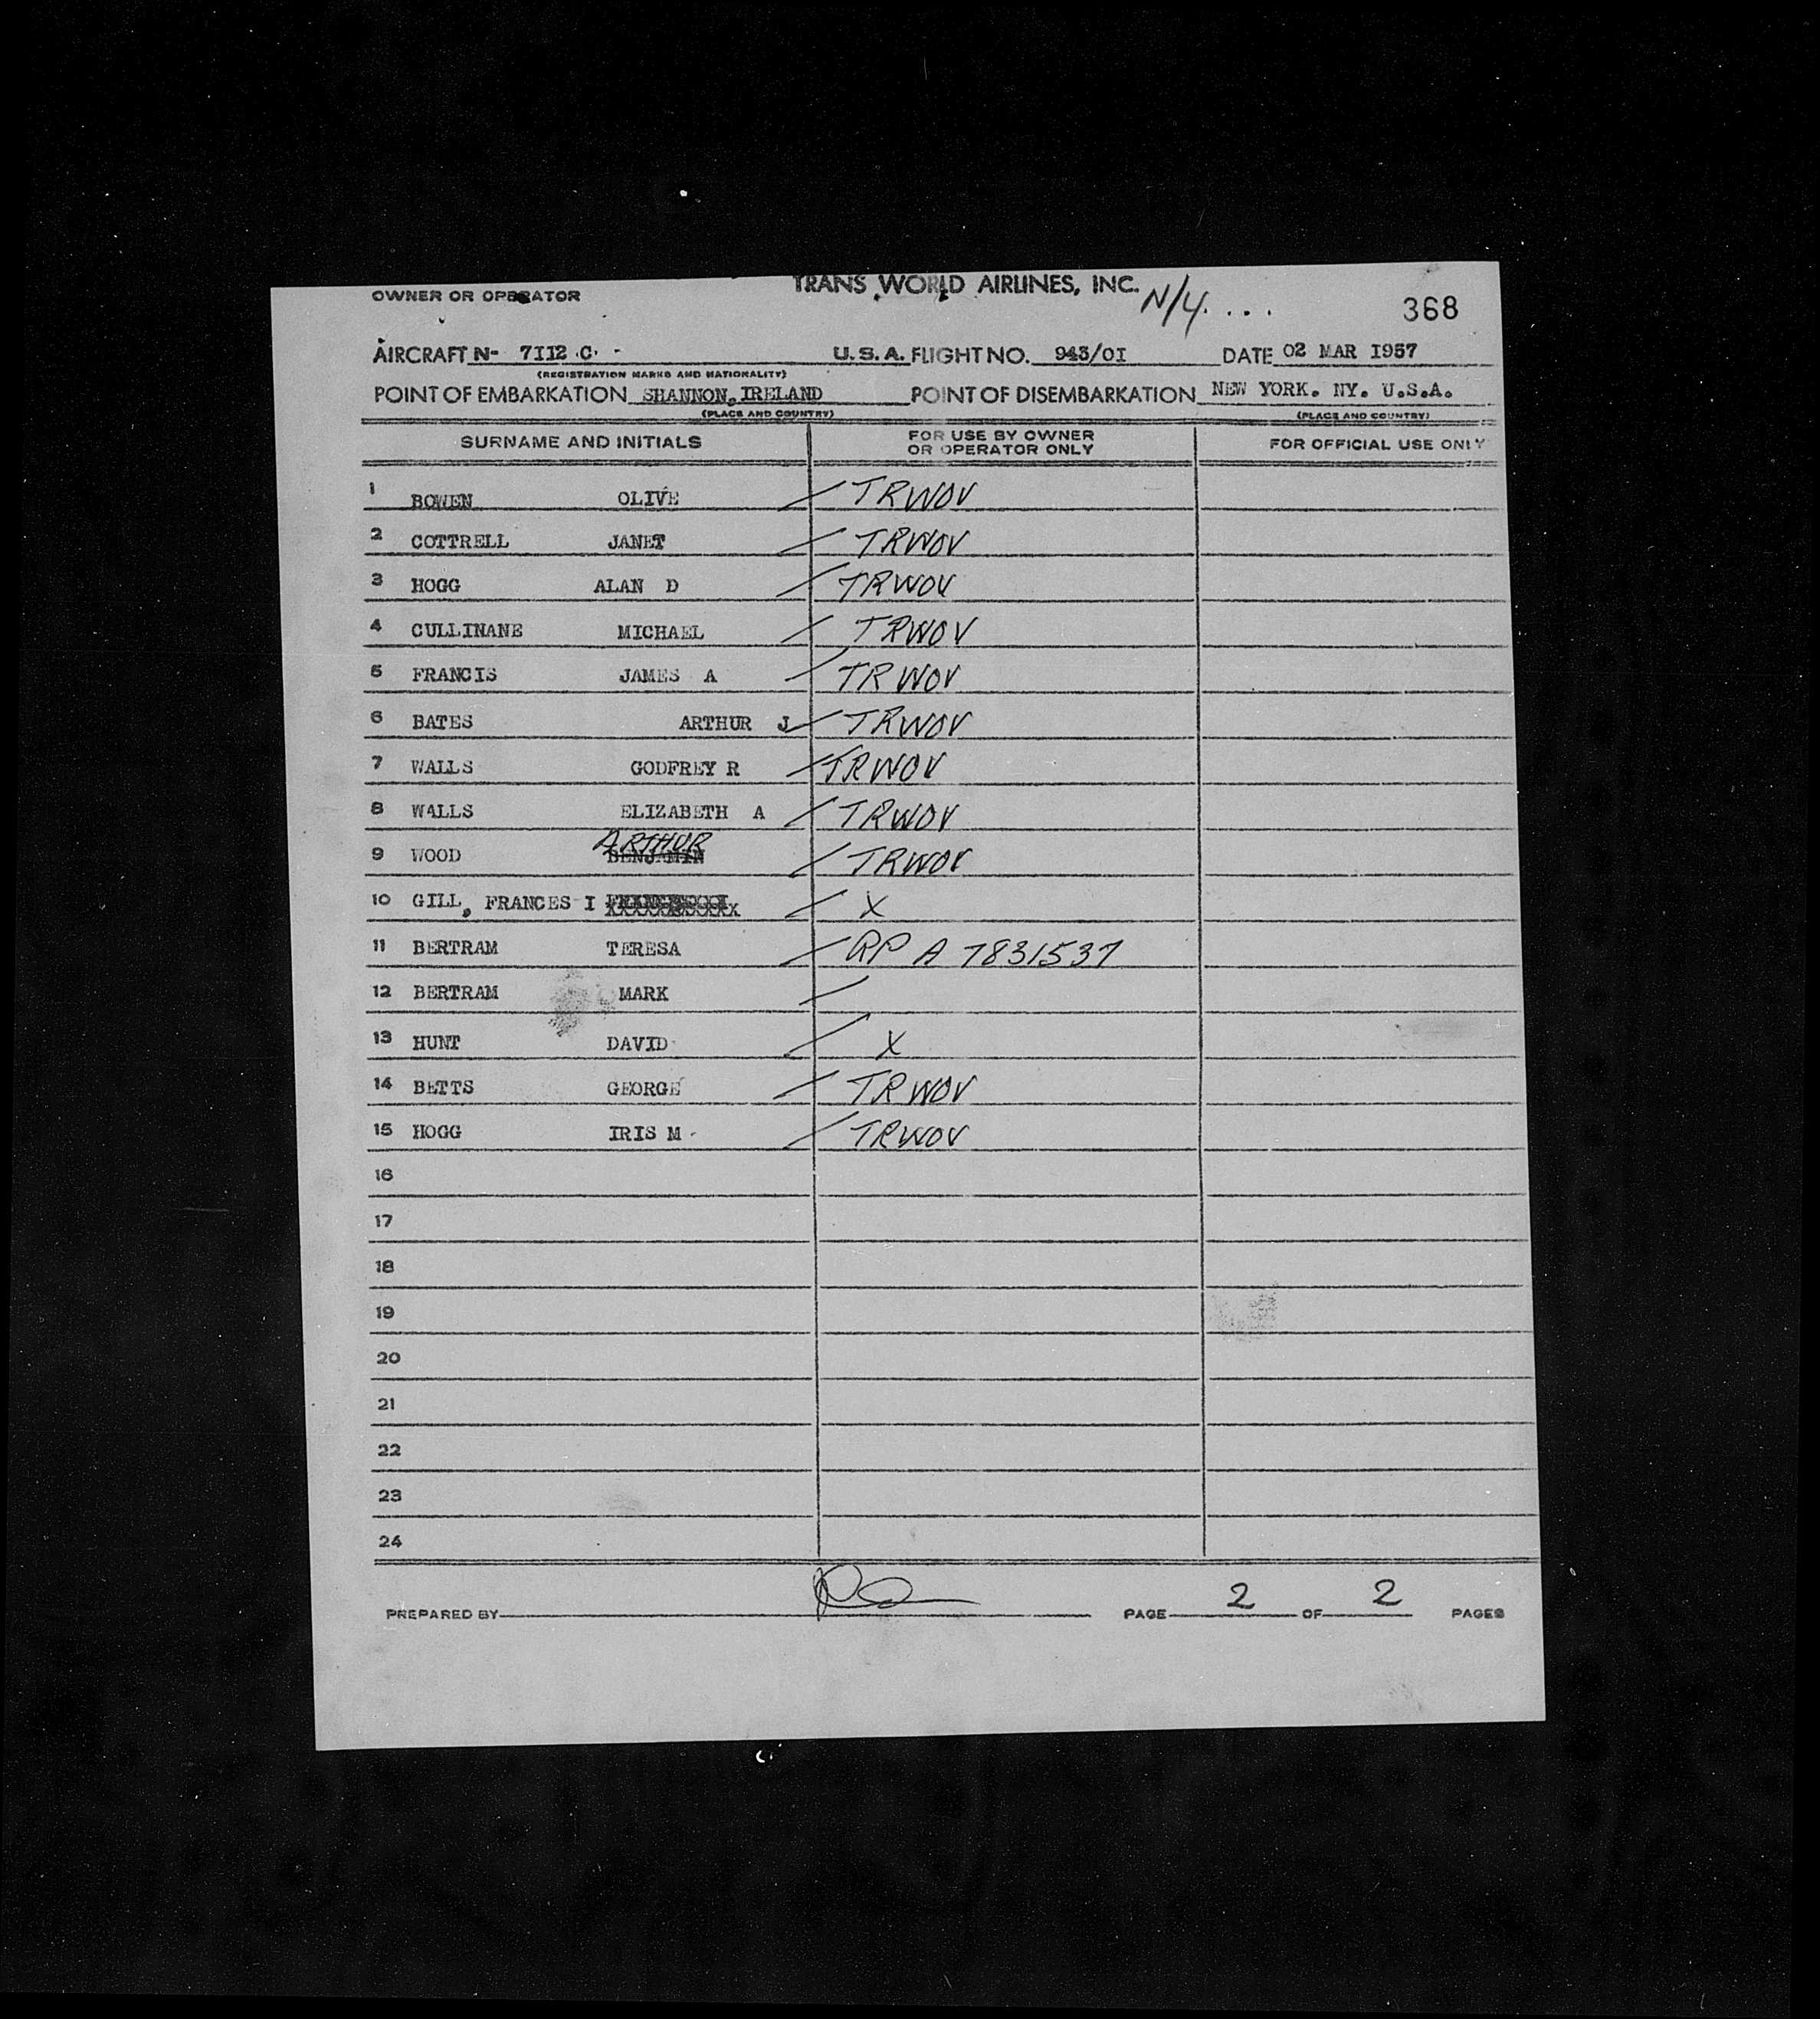 TRANS WORLD AIRLINES, INC. N/Y....
OWNER OR OPERATOR 368
AIRCRAFT N- 7112 C. - U.S.A. FLIGHT NO. 943/01 DATE 02 MAR 1957
(REGISTRATION MARKS AND NATIONALITY)
POINT OF EMBARKATION SHANNON, IRELAND POINT OF DISEMBARKATION NEW YORK. NY. U.S.A.
(PLACE AND COUNTRY) (PLACE AND COUNTRY)
SURNAME AND INITIALS FOR USE BY OWNER OR OPERATOR ONLY FOR OFFICIAL USE ONLY
1 BOWEN OLIVE / TRWOV
2 COTTRELL JANET / TRWOV
3 HOGG ALAN D / TRWOV
4 CULLINANE MICHAEL / TRWOV
5 FRANCIS JAMES A / TRWOV
6 BATES ARTHUR J / TRWOV
7 WALLS GODFREY R / TRWOV
8 WALLS ELIZABETH A / TRWOV
ARTHUR
9 WOOD BENJAMIN / TRWOV
10 GILL, FRANCES I / X
11 BERTRAM TERESA / RP A 7831537
12 BERTRAM MARK /
13 HUNT DAVID / X
14 BETTS GEORGE / TRWOV
15 HOGG IRIS M - / TRWOV
16
17
18
19
20
21
22
23
24
PREPARED BY PAGE 2 OF 2 PAGES